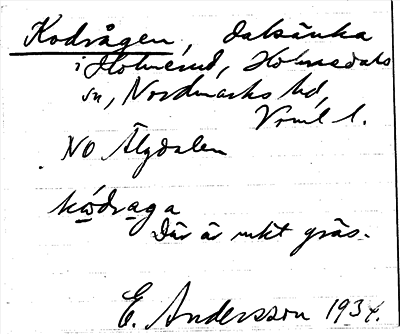 Kodrågen, dalsänka
i Holmerud, Holmedals
sn, Nordmarks hd,
Vrml l.
NO Älgdalen
kódraga
Där är rikt gräs.
E. Andersson 1934.